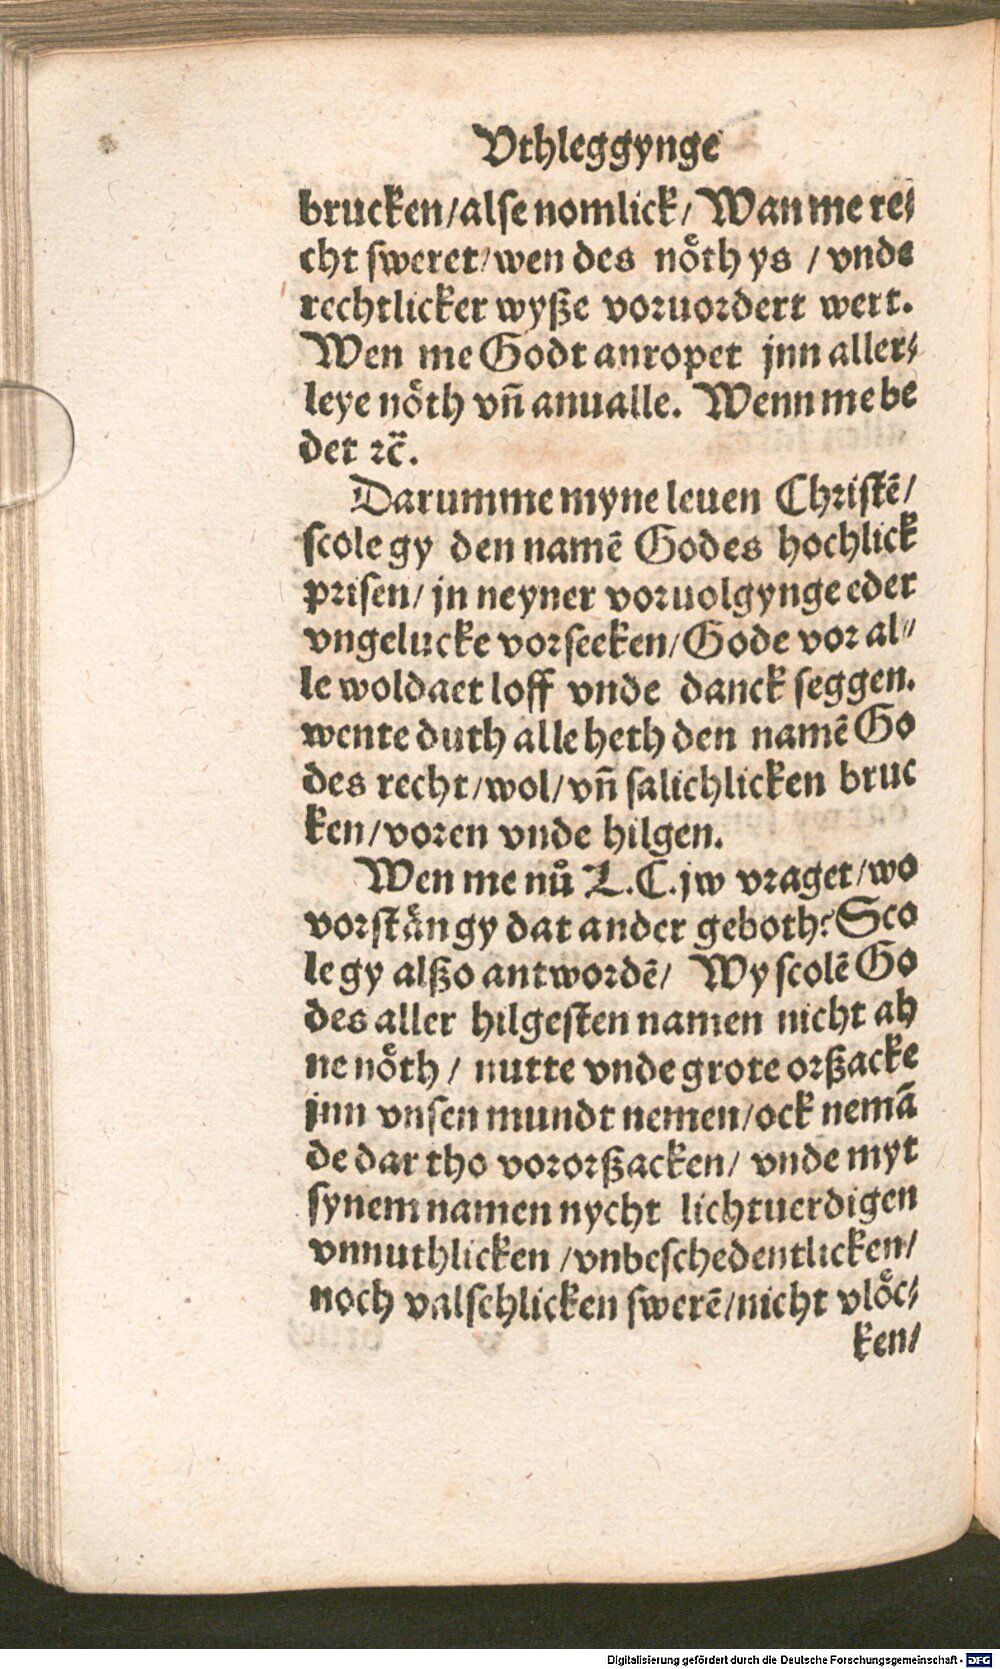 Vthleggynge
brucken/alse nomlick/ Wan me re⸗
cht sweret/wen des noͤth ys / vnde
rechtlicker wyße voruordert wert.
Wen me Godt anropet jnn aller⸗
leye noͤth vñ anualle. Wenn me be
det ꝛc̈.
Darumme myne leuen Christē/
scole gy den namē Godes hochlick
prisen/ jn neyner voruolgynge eder
vngelucke vorseeken/Gode vor al⸗
le woldaet loff vnde danck seggen.
wente duth alle heth den namē Go
des recht/wol/vñ salichlicken bruc
ken/voren vnde hilgen.
Wen me nů L.C.jw vraget/wo
vorstaͤn gy dat ander geboth? Sco
le gy alßo antwordē/ Wy scolē Go
des aller hilgesten namen nicht ah
ne noͤth / nutte vnde grote orßacke
jnn vnsen mundt nemen/ock nemā
de dar tho vororßacken/ vnde myt
synem namen nycht lichtuerdigen
vnnuthlicken /vnbeschedentlicken/
noch valschlicken swerē/nicht vloͤc⸗
ken/
Digitalisierung gefördert durch die Deutsche Forschungsgemeinschaft - DFG